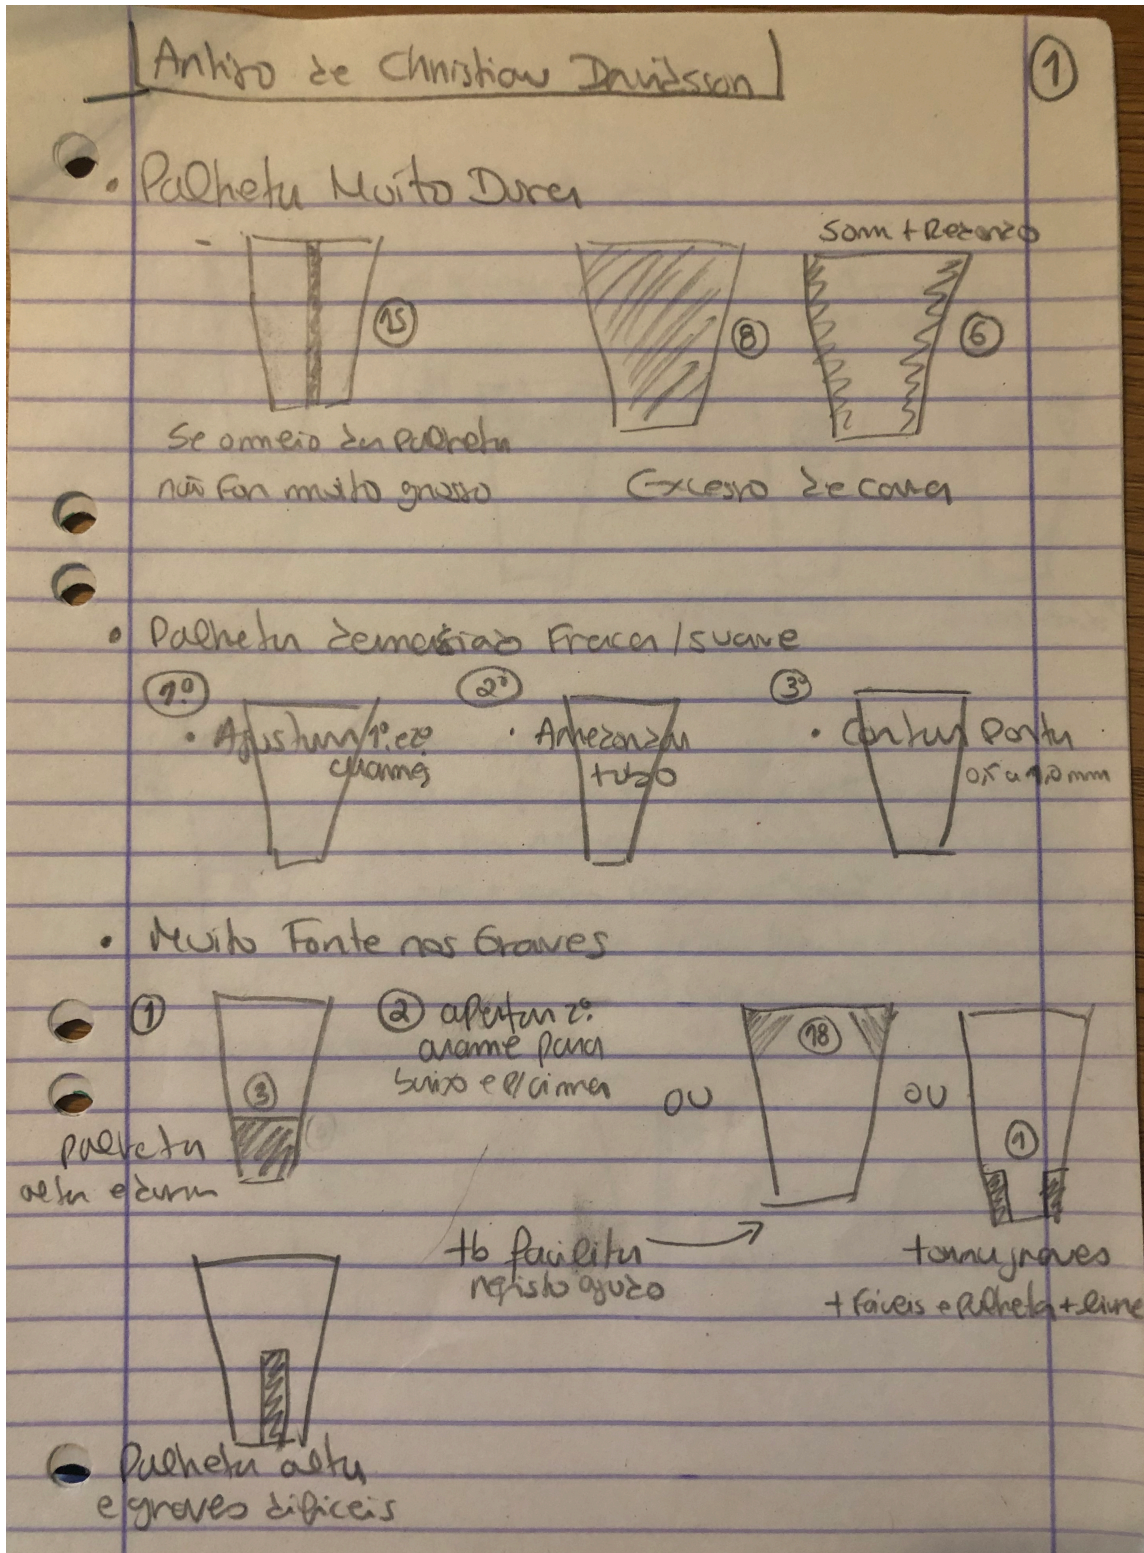 Artigo de Christian Davidsson
1
• Palheta Muito Dura
Som + Redondo
15
8
6
Se o meio da palheta
não for muito grosso
Excesso de cana
• Palheta demasiado Fraca/suave
1º
2º
3º
• Ajustar 1º e 2º
arames
• Arredondar
tubo
• Cortar Ponta
0,5 a 1,0 mm
• Muito Forte nos Graves
1
3
palheta
alta e dura
2 apertar 2º
arame para
baixo e p/ cima
ou
18
ou
1
tb facilita
registo agudo
torna graves
+ fáceis e palheta + livre
Palheta alta
e graves dificeis